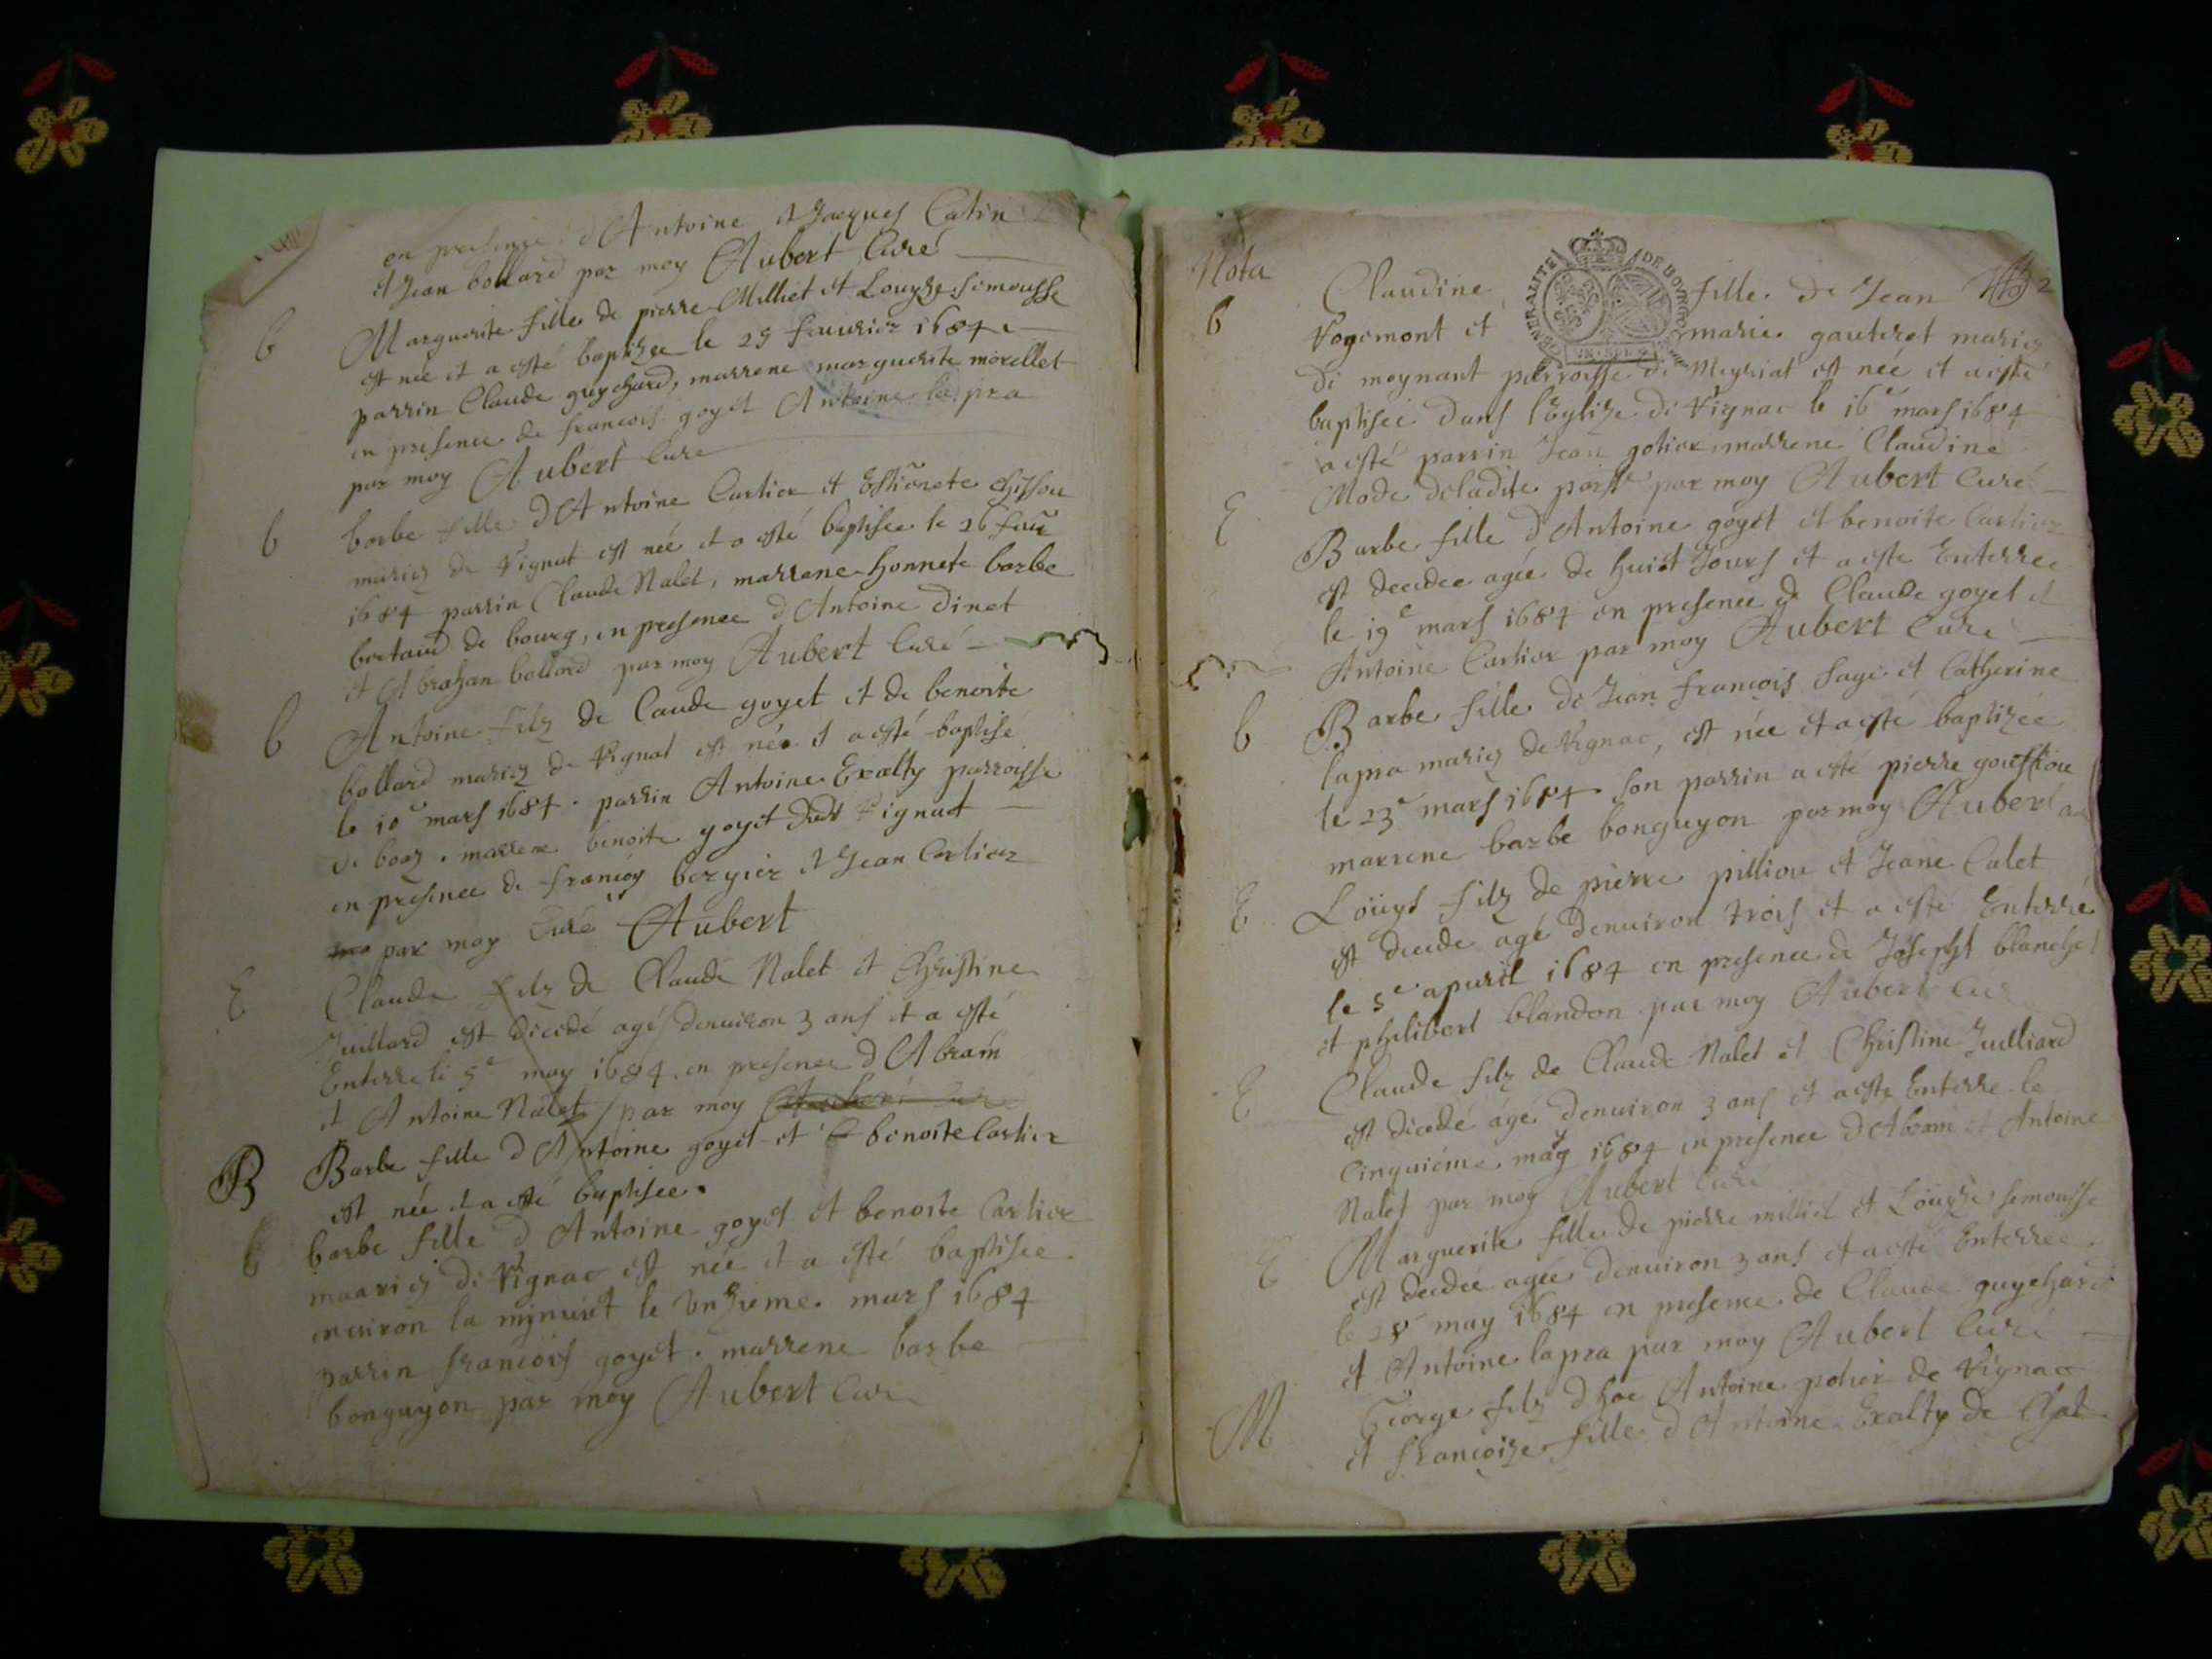 en presence d Antoine et Jacques Catin
et Jean bollard par moy Aubert Curé
b
Marguerite fille de pierre Milliet et Louyze semousse
est née et a esté baptizee le 25 feuurier 1684
parrin Claude guychard, marrene marguerite morellet
en presence de francois goyet Antoine lapra
par moy Aubert Cure
b
barbe fille d Antoine Carlier et Estienete
mariez de Vignat est née et a esté baptisee le 26 feur
1684 parrin Claude Nalet, marrene honnete barbe
bertaud de bourg, en presence d Antoine dinet
et Abrahan bollard par moy Aubert Curé
b
Antoine filz de Caude goyet et de benoite
bollard mariez de Vignat est née et a esté baptisé
le 10e mars 1684. parrin Antoine Exalty parroisse
de . marrene benoite goyet dudt Vignat
en presence de francoy bergier et Jean Carlier
par moy Curé Aubert
E
Claude filz de Claude Nalet et Christine
Juillard est decedé agé denuiron 3 ans et a esté
Enterre le 5e may 1684. en presence d Abram
et Antoine Nalet par moy
B
Barbe fille d Antoine goyet et benoite Carlier
est née et a esté baptisee.
b
barbe fille d Antoine goyet et benoite Carlier
maariez de Vignac est née et a esté baptisee
enuiron la mynuict le Vnzieme mars 1684
parrin francois goyet. marrene barbe
bonguyon par moy Aubert Cure
Nota
2
b
Claudine fille de Jean
GENERALITE DE BOVRGOGNE
VN SOL
Vogemont et marie gauteret mariez
de moynant parroisse de Meyriat est née et a esté
baptisée dans l'Eglize de Vignac le 16e mars 1684
a esté parrin Jean gotier, marrene Claudine
Mode deladite parse par moy Aubert Curé
E
Barbe fille d Antoine goyet et benoite Carlier
est decedee agée de huict Jours et a este Enterree
le 19e mars 1684 en presence de Claude goyet et
Antoine Carlier par moy Aubert Curé
b
Barbe fille de Jean francois sage et Catherine
lapra mariez de Vignac, est née et a esté baptizée
le 23e mars 1684 son parrin a esté pierre
marrene barbe bonguyon par moy Aubert
E
Loüys filz de pierre pilliou et Jeane Calet
est decede agé denuiron trois et a esté Enterré
le 5e apuril 1684 en presence de Josepht blanchet
et philibert blandon par moy Aubert Cure
E
Claude filz de Claude Nalet et Christine Juilliard
est decedé agé denuiron 3 ans et a este Enterre le
Cinquiéme may 1684 en presence d Abram et Antoine
Nalet par moy Aubert Curé
E
Marguerite fille de pierre milliet et Loüyze semousse
est decedée agée denuiron 3 ans et a esté Enterree
le 28e may 1684 en presence de Claude guychard
et Antoine lapra par moy Aubert Curé
M
George filz d hoe Antoine potier de Vignac
et francoise fille d Antoine Exalty de